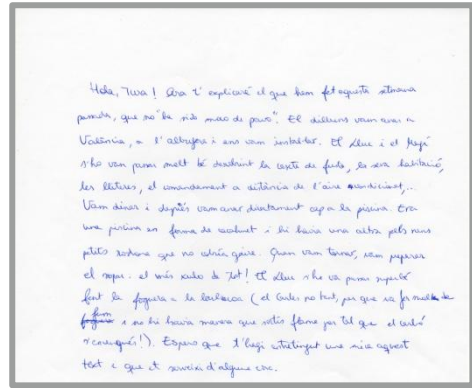 Hola, Jura! Ara t'explicaré el que hem fet aquesta setmana
passada, que no ha sido moco de pavo". El dilluns vam anar a
València, a l'albufera i ens vam instal·lar. El Lluc i el Magí
s'ho van passar molt bé descobrint la cesta de fruita, la seva habitació,
les lliteres, el comandament a distància de l'aire condicionat,...
Vam dinar i després vam anar directament cap a la piscina. Era
una piscina en forma de cacahuet i hi havia una altra pels nens
petits rodona que no cobria gaire. Quan vam tornar, vam preparar
el sopar. el més xulo de tot! El Lluc s'ho va passar superbé
fent la foguera a la barbacoa (el Carles no tant, perque va fer molta de
fum i no hi havia manera que sortís flama per tal que el carbó
s'encengués!). Espero que t'hagi entretingut una mica aquest
text i que et serveixi d'alguna cosa.